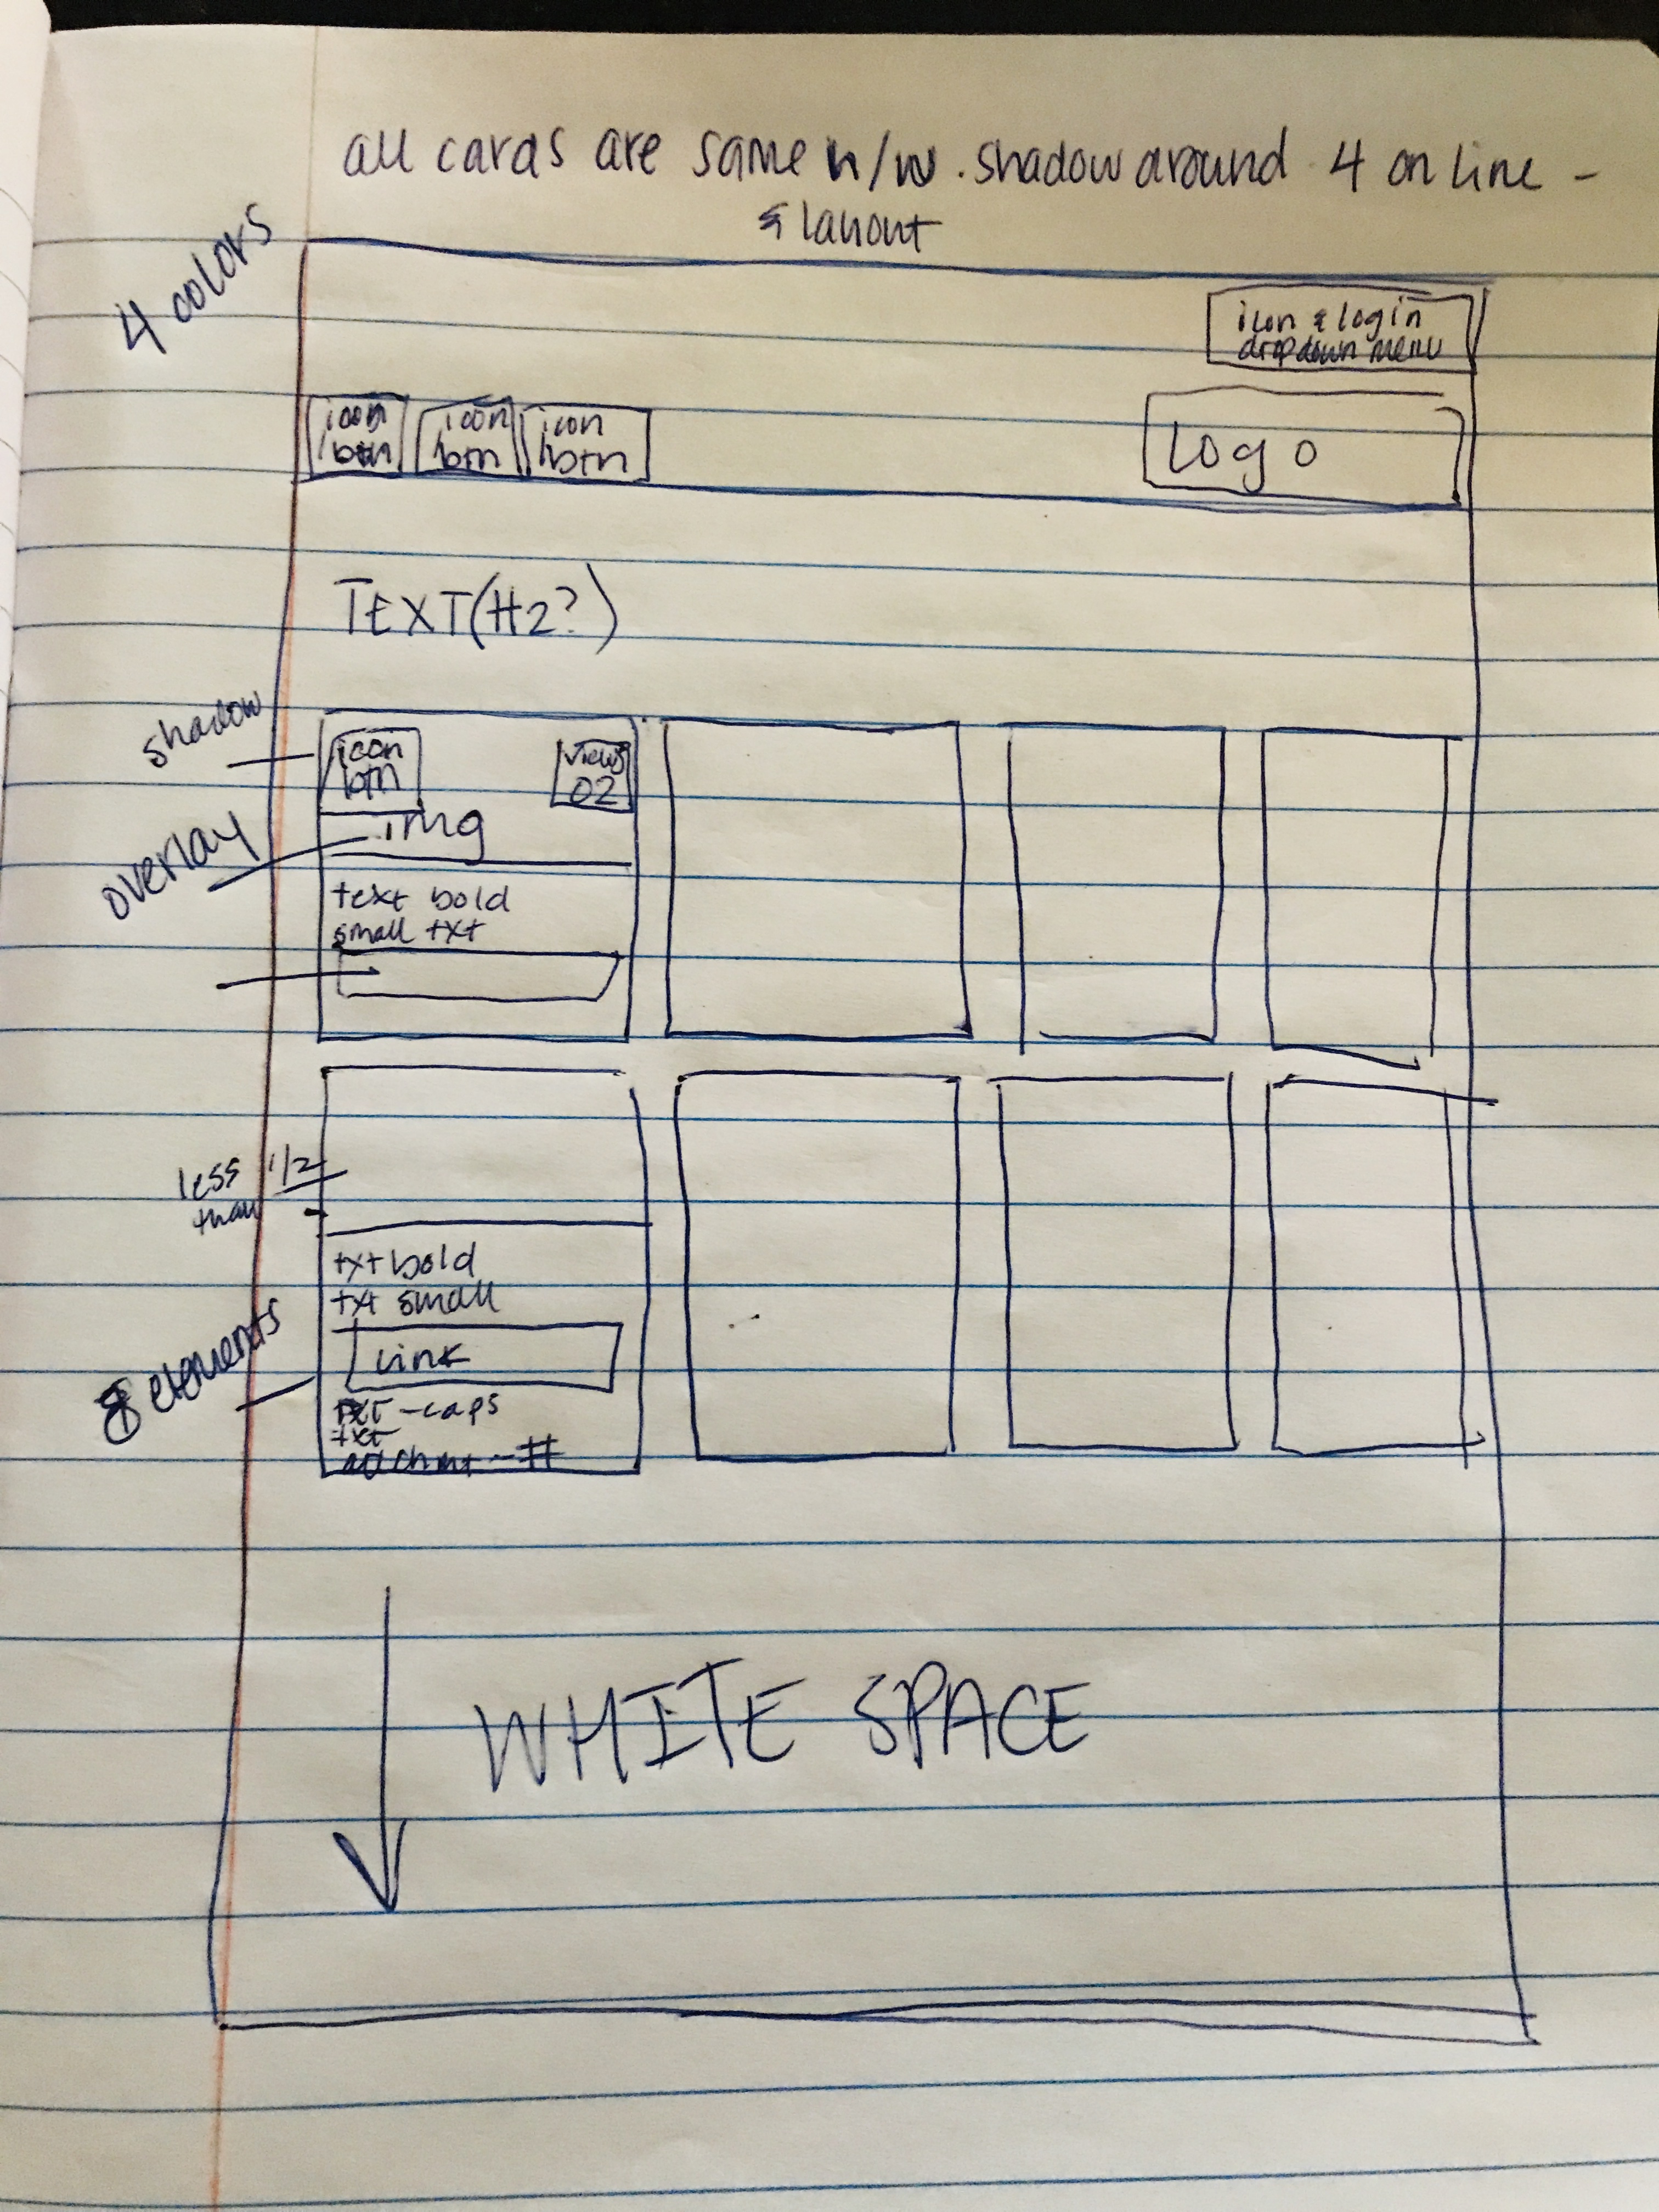 all cards are same h/w . shadow around 4 on line -
& layout
4 colors
icon & login
dropdown menu
icon
btn
icon
btn
icon
btn
Logo
TEXT (H2?)
shadow
icon
btn
views
02
overlay
img
text bold
small txt
less 1/2
than
txt bold
txt small
8 elements
link
txt - caps
txt
WHITE SPACE